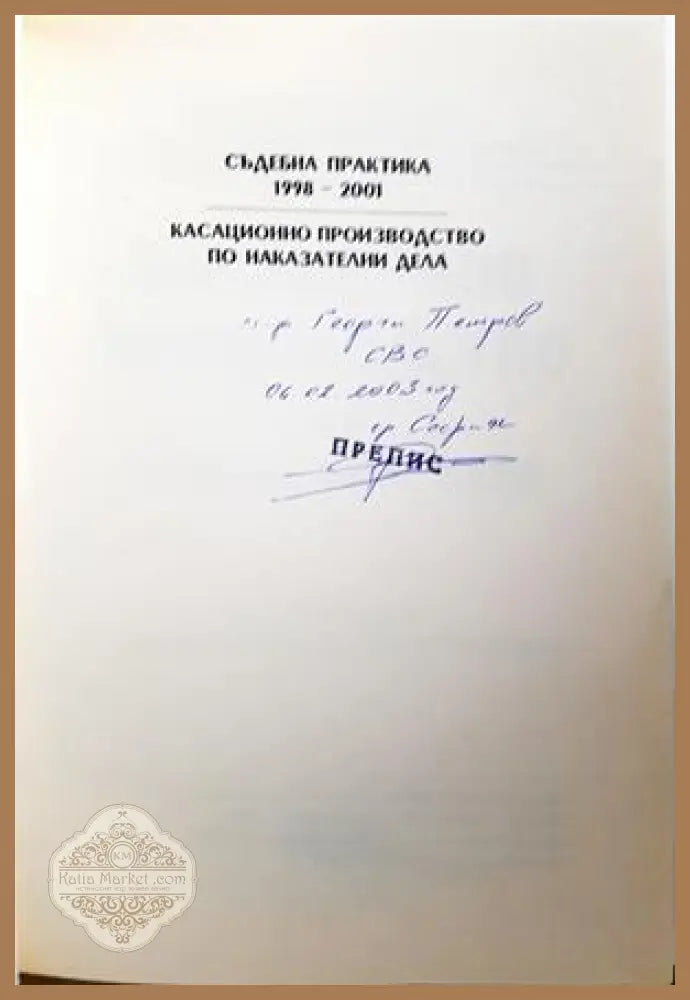 СЪДЕБНА ПРАКТИКА
1998 – 2001
КАСАЦИОННО ПРОИЗВОДСТВО
ПО НАКАЗАТЕЛНИ ДЕЛА
Георги Петров
СВС
2003 год
гр София
ПРЕПИС
KM
Katia Market .com